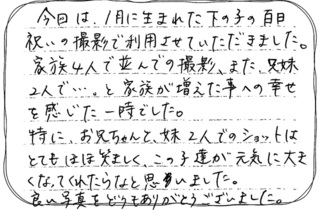 今回は、1月に生まれた下の子の百日
祝いの撮影で利用させていただきました。
家族4人で並んでの撮影、また、兄妹
2人で…。と家族が増えた事への幸せ
を感じた一時でした。
特に、お兄ちゃんと、妹2人でのショットは
とてもほほ笑ましく、この子達が元気に大き
くなってくれたらなと思いました。
良い写真をどうもありがとうございました。